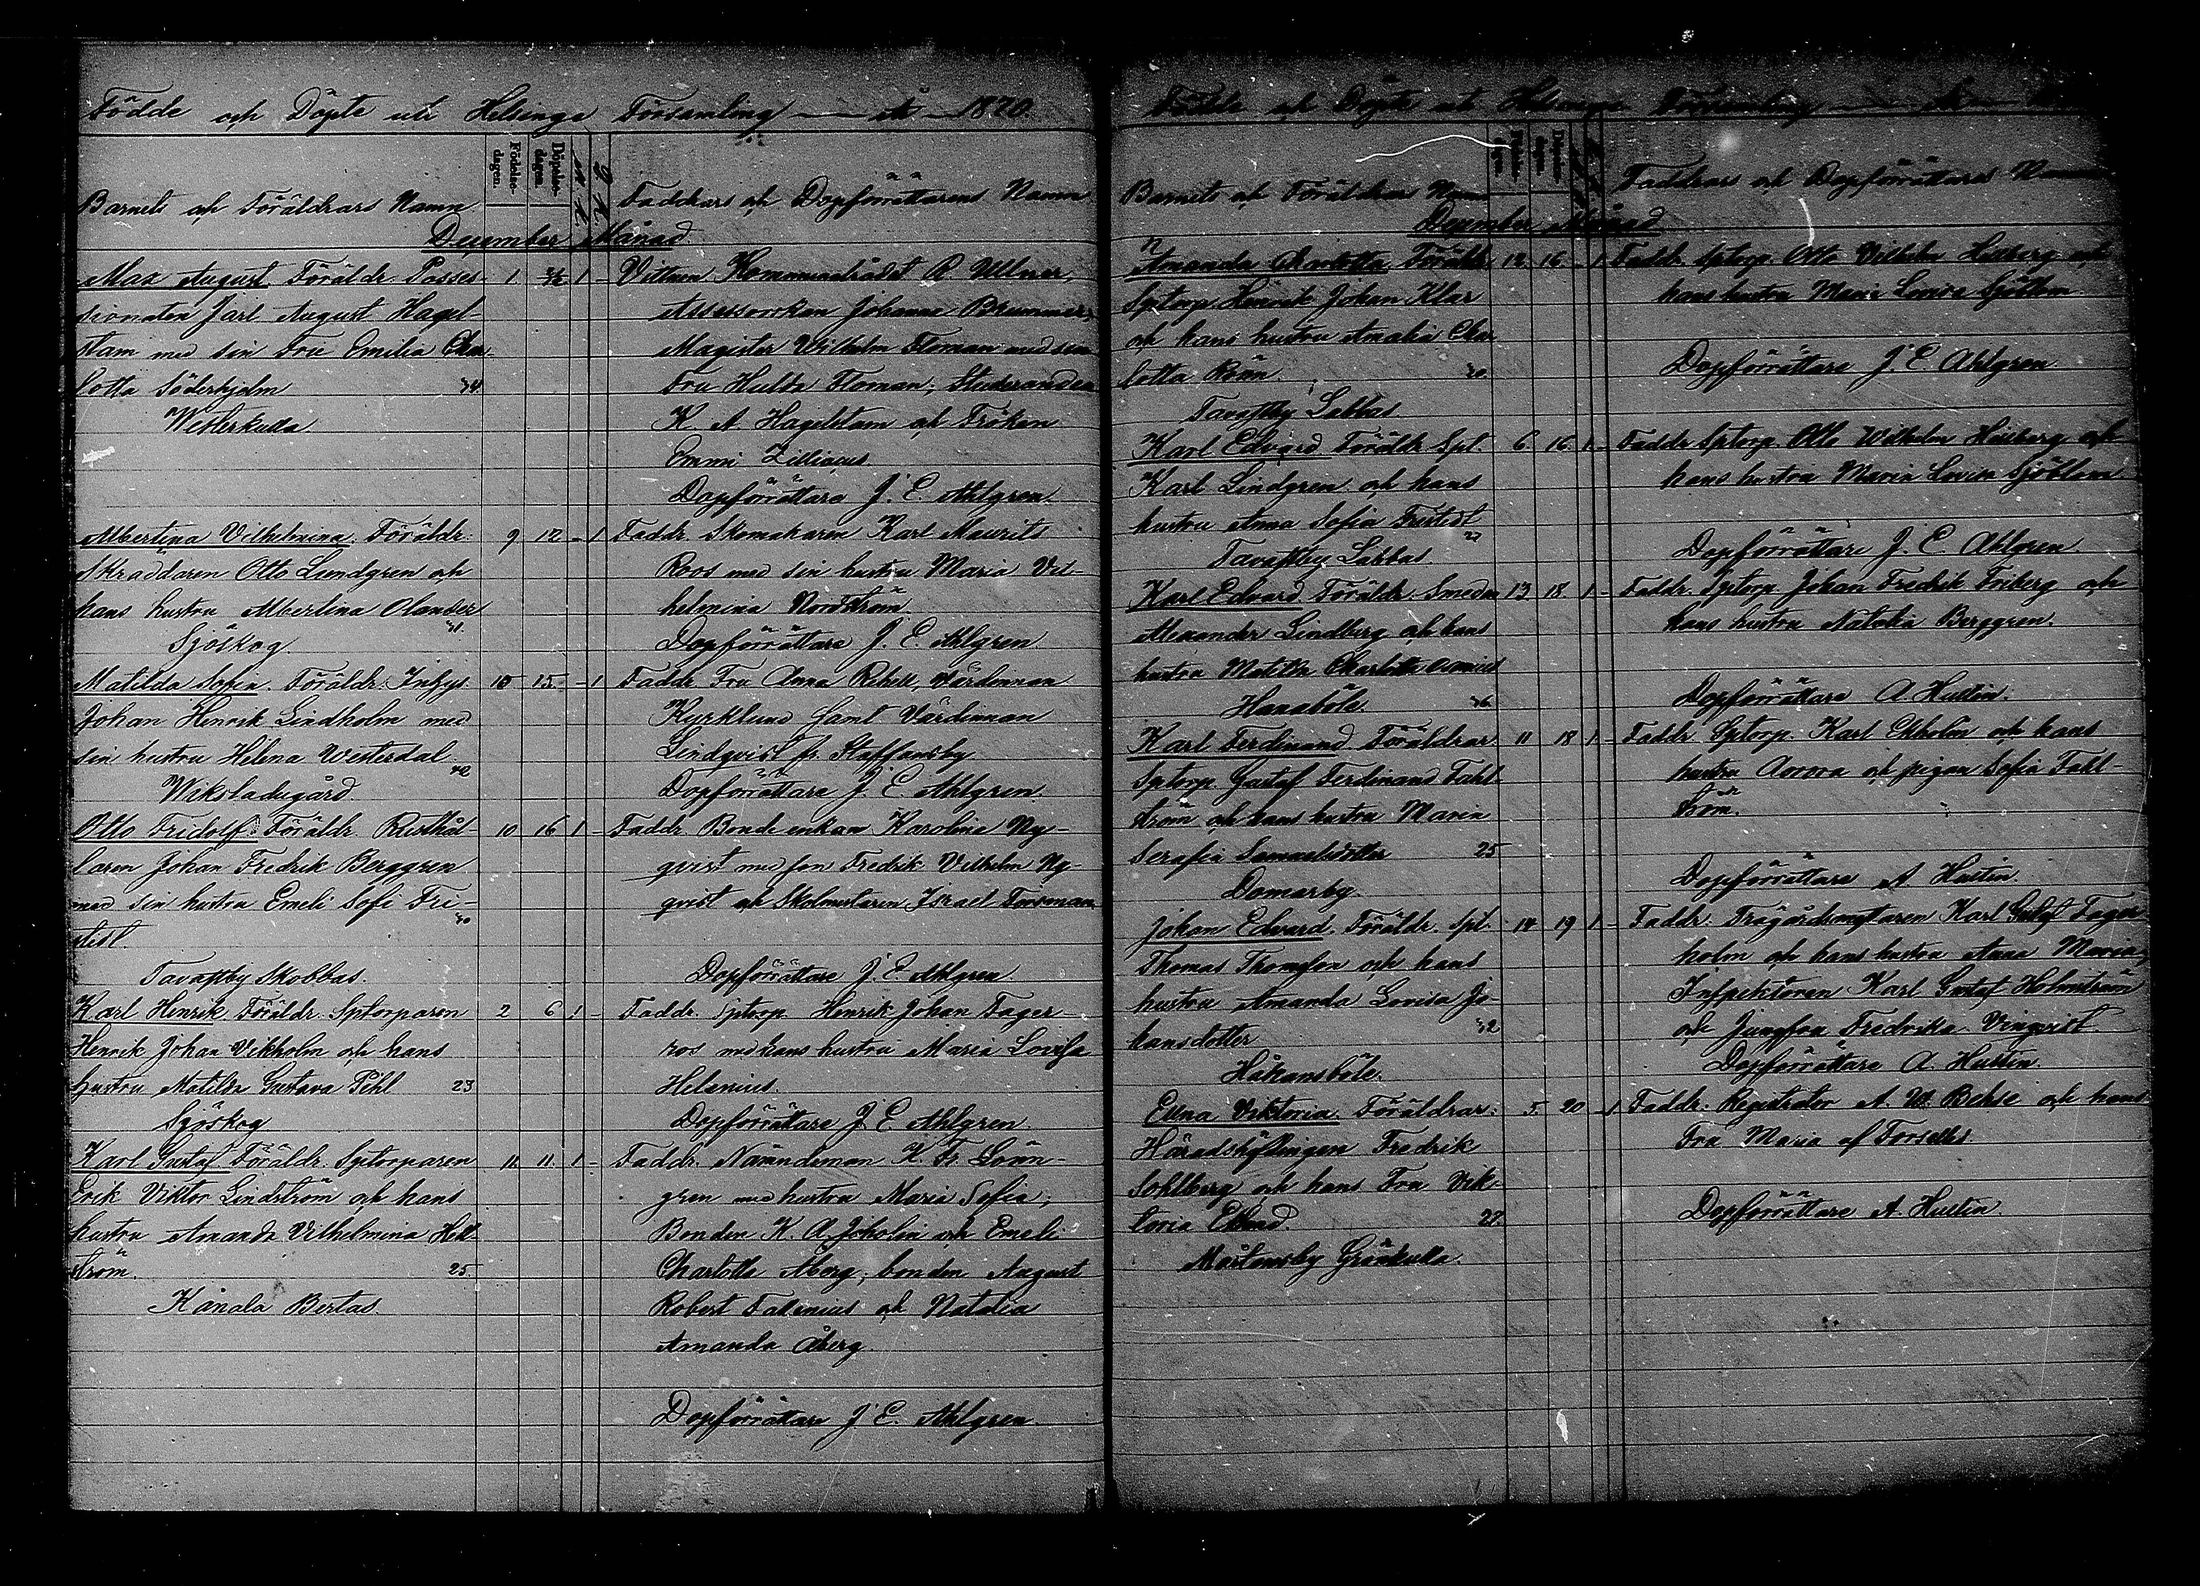 Födde och Döpte uti Helsinge Församling — År — 1870.
Barnets och Föräldrars Namn
Födelse-dagen.
Döpelse-dagen.
M K
Q K
Faddrars och Dopförrättarens Namn
December Månad
Max August. Föräldr. Posses- 1 1 -
sionaten Jarl August Hagel-
stam med sin Fru Emilia Char-
lotta Söderhjelm 34
Westerkulla
Vittnen Kommunalrådet R Ullner,
Assessorskan Johanna Brummer,
Magister Wilhelm Floman med sin
fru Hulda Floman, Studeranden
K A Hagelstam och Fröken
Emmi Zilliacus
Dopförrättare J. E. Ahlgren.
Albertina Vilhelmina. Föräldr. 9 12 - 1
Skräddaren Otto Lundgren och
hans hustru Albertina Olander
31.
Sjöskog
Faddr. Skomakaren Karl Maurits
Roos med sin hustru Maria Vil-
helmina Nordström
Dopförrättare J. E. Ahlgren
Matilda Sofia. Föräldr. Inhys 10 15 - 1
Johan Henrik Lindholm med
sin hustru Helena Westerdal
42
Wiksladugård.
Faddr. Fru Anna Rehell, Värdinnan
Kyrklund samt Värdinnan
Lindqvist fr. Staffansby
Dopförrättare J. E Ahlgren.
Otto Fridolf. Föräldr. Rusthål- 10 16 1 -
laren Johan Fredrik Berggren
med sin hustru Emeli Sofi Fri-
30
stedt
Tavastby Skobbas.
Faddr. Bonde enkan Karolina Ny-
qvist med son Fredrik Vilhelm Ny-
qvist och Skolmästaren Israel Forsman
Dopförrättare J. E. Ahlgren
Karl Henrik Föräldr. Sptorparen 2 6 1 -
Henrik Johan Vikholm och hans
hustru Matilda Gustava Pihl 23
Sjöskog
Faddr. Sptorp. Henrik Johan Fager-
ros med hans hustru Maria Lovisa
Helenius.
Dopförrättare J. E Ahlgren
Karl Gustaf Föräldr. Sptorparen 11 11. 1 -
Erik Viktor Lindström och hans
hustru Amanda Vilhelmina Hell-
ström. 25.
Kånala Bertas.
Faddr. Nämndeman K. Fr. Löön-
gren med hustru Maria Sofia,
Bonden K. A. Joholin och Emeli
Charlotta Åberg, bonden August
Robert Fallenius och Natalia
Amanda Åberg
Dopförrättare J. E. Ahlgren.
Födde och Döpte uti Helsinge Församling — År —
Barnets och Föräldrars Namn
Faddrars och Dopförrättares Namn
December Månad
Amanda Charlotta. Föräldr. 12 16 - 1
Sptorp. Henrik Johan Klar
och hans hustru Amalia Char
lotta Röön.
Tavastby Labbas
Faddr. Sptorp. Otto Vilhelm Hedberg och
hans hustru Maria Lovisa Sjöblom.
Dopförrättare J. E. Ahlgren.
Karl Edvard Föräldr. Spt. 6 16. 1 -
Karl Lindgren och hans
hustru Anna Sofia Fristedt
27
Tavastby Labbas
Faddr. Sptorp. Otto Wilhelm Hedberg och
hans hustru Maria Lovisa Sjöblom.
Dopförrättare J. E. Ahlgren.
Karl Edvard. Föräldr. Smeden 13 18. 1 -
Alexander Lindberg och hans
hustru Matilda Charlotta
Hanaböle. 36
Faddr. Sptorp Johan Fredrik Friberg och
hans hustru Natalia Berggren.
Dopförrättare A Hustin.
Karl Ferdinand Föräldrar 11 18 1 -
Sptorp. Gustaf Ferdinand Fahl-
ström och hans hustru Maria
Serafia Samuelsdotter 25
Domarby.
Faddr. Sptorp. Karl Ekholm och hans
hustru Aurora och pigan Sofia Fahl-
ström.
Dopförrättare A. Hustin.
Johan Edvard. Föräldr. Spt. 14 19 1 -
Thomas Thomsson och hans
hustru Amanda Lovisa Jo-
hansdotter 32
Håkansböle.
Faddr. Trägårdsmästaren Karl Gustaf Fager
holm och hans hustru Anna Maria,
Inspektoren Karl Gustaf Holmström
och Jungfru Fredrika Vinqvist
Dopförrättare A. Hustin.
Edna Viktoria. Föräldrar: 5. 20 - 1
Häradshöfdingen Fredrik
Sohlberg och hans Fru Vik-
toria Eklund. 28.
Mårtensby Gråskulla.
Faddr. Registrator A. W. Behse och hans
Fru Maria af Forselles.
Dopförrättare A. Hustin.